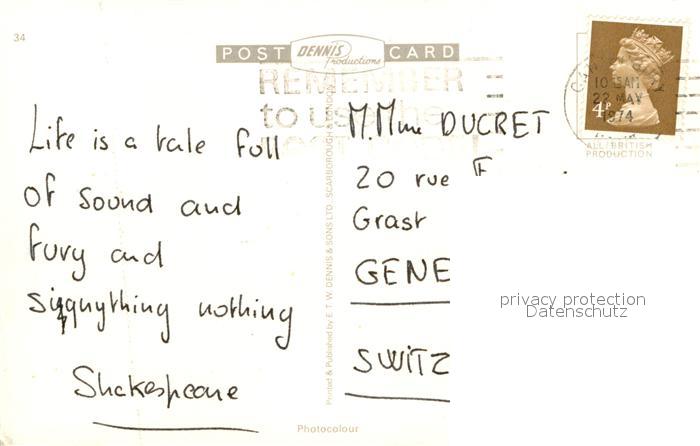 34
POST DENNIS Productions CARD
REMEMBER
to use the
10 15AM
22 MAY
1974
4P
ALL/BRITISH
PRODUCTION
Life is a tale full
of sound and
fury and
signythin nothing
Shakespeare
Printed & Published by E. T. W. DENNIS & SONS LTD SCARBOROUGH & LONDON
M.Mme DUCRET
20 rue F
Grast
GENE
SWITZ
privacy protection
Datenschutz
Photocolour